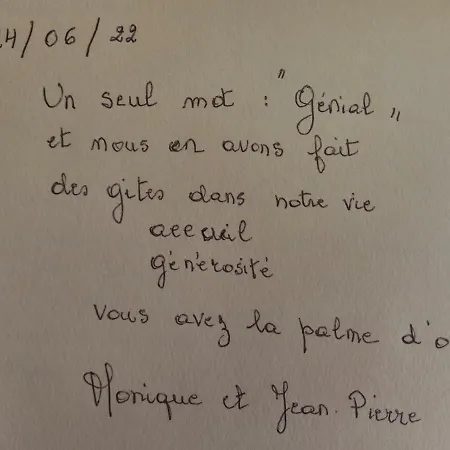 24/06/22
Un seul mot : "Génial"
et nous en avons fait
des gites dans notre vie
accueil
générosité
vous avez la palme d'o
Monique et Jean.Pierre